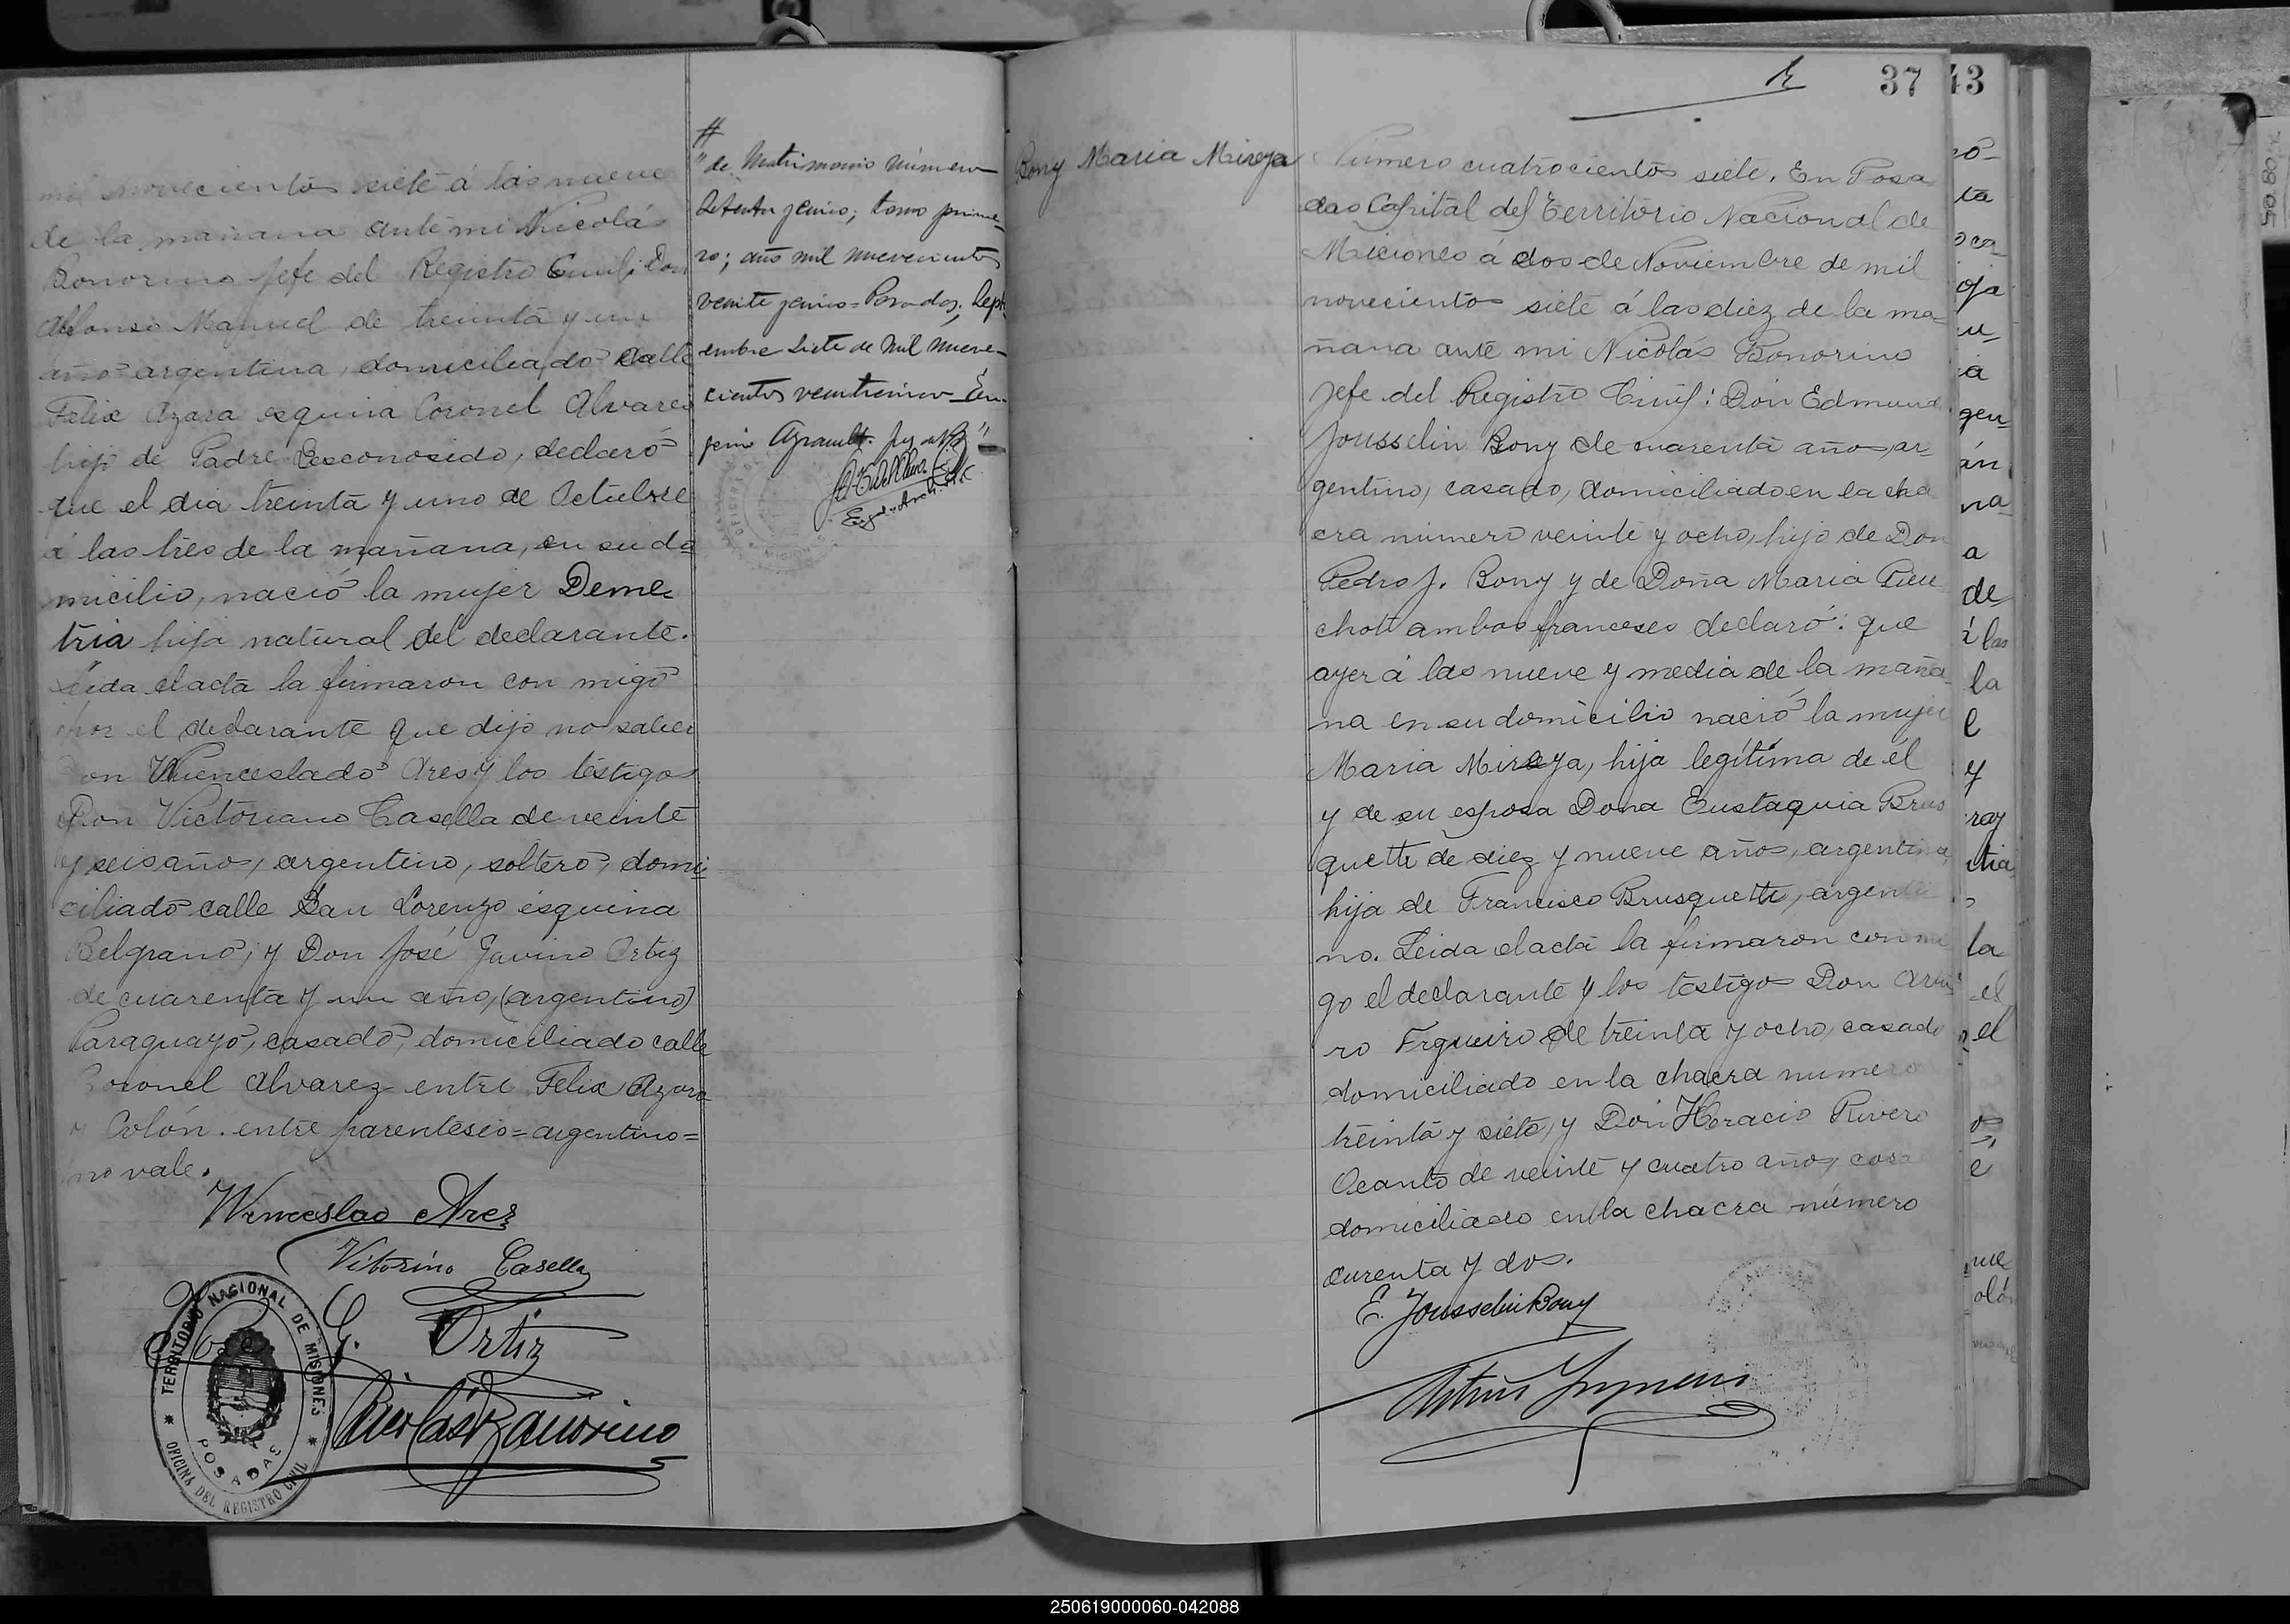 mil novecientos siete á las nueve
de la mañana ante mi Nicolás
Bonorino Jefe del Registro Civil; Don
Alfonso Manuel de treinta y un
año argentina, domiciliado Calle
Felix Azara esquina Coronel Alvarez
hijo de Padre Desconosido, declaró
que el dia treinta y uno de Octubre
á las tres de la mañana, en su do
micilio, nació la mujer Deme-
tria hija natural del declarante.
Leida el acta la firmaron con migo
por el declarante que dijo no saber
Don Wuenceslado Ares y los testigos
Don Victoriano Casella de veinte
y seis año, argentino, soltero, domi-
ciliado calle San Lorenzo esquina
Belgrano; y Don José Gavino Ortiz
de cuarenta y un año, (argentino)
Paraguayo, casado, domiciliado calle
Coronel Alvarez entre Felix Azara
y Colón. entre parentesis=argentino=
no vale.
Wenceslao Arez
Vitorino Casella
José G. Ortiz
Nicolás Bonorino
TERRITORIO NACIONAL DE MISIONES
POSADAS
OFICINA DEL REGISTRO CIVIL
#
" de Matrimonio número
; tomo prime-
ro; año mil novecientos
veinte = Posadas, Sept-
iembre siete de mil nueve-
cientos
37
43
Bony Maria Mireya
Número cuatrocientos siete. En Posa
das Capital del Territorio Nacional de
Miciones á dos de Noviembre de mil
novecientos siete á las diez de la ma-
ñana ante mi Nicolás Bonorino
Jefe del Registro Civil: Don Edmund
Jousselin Bony de cuarenta años, ar-
gentino, casado, domiciliado en la cha
cra número veinte y ocho, hijo de Don
Pedro J. Bony y de Doña Maria
ambos franceses declaró: que
ayer á las nueve y media de la maña
na en su domicilio nació la mujer
Maria Mireya, hija legítima de él
y de su esposa Dona Eustaquia Brus
quetti de diez y nueve años, argentina,
hija de Francisco Brusquetti, argenti
no. Leida el acta la firmaron con mi
go el declarante y los testigos Don Artu
ro Frqueiro de treinta y ocho, casado
domiciliado en la chacra numero
treinta y siete, y Don Horacio Rivero
Ocanto de veinte y cuatro años, casa
domiciliado en la chacra número
curenta y dos.
E. Jousselin Bony
250619000060-042088